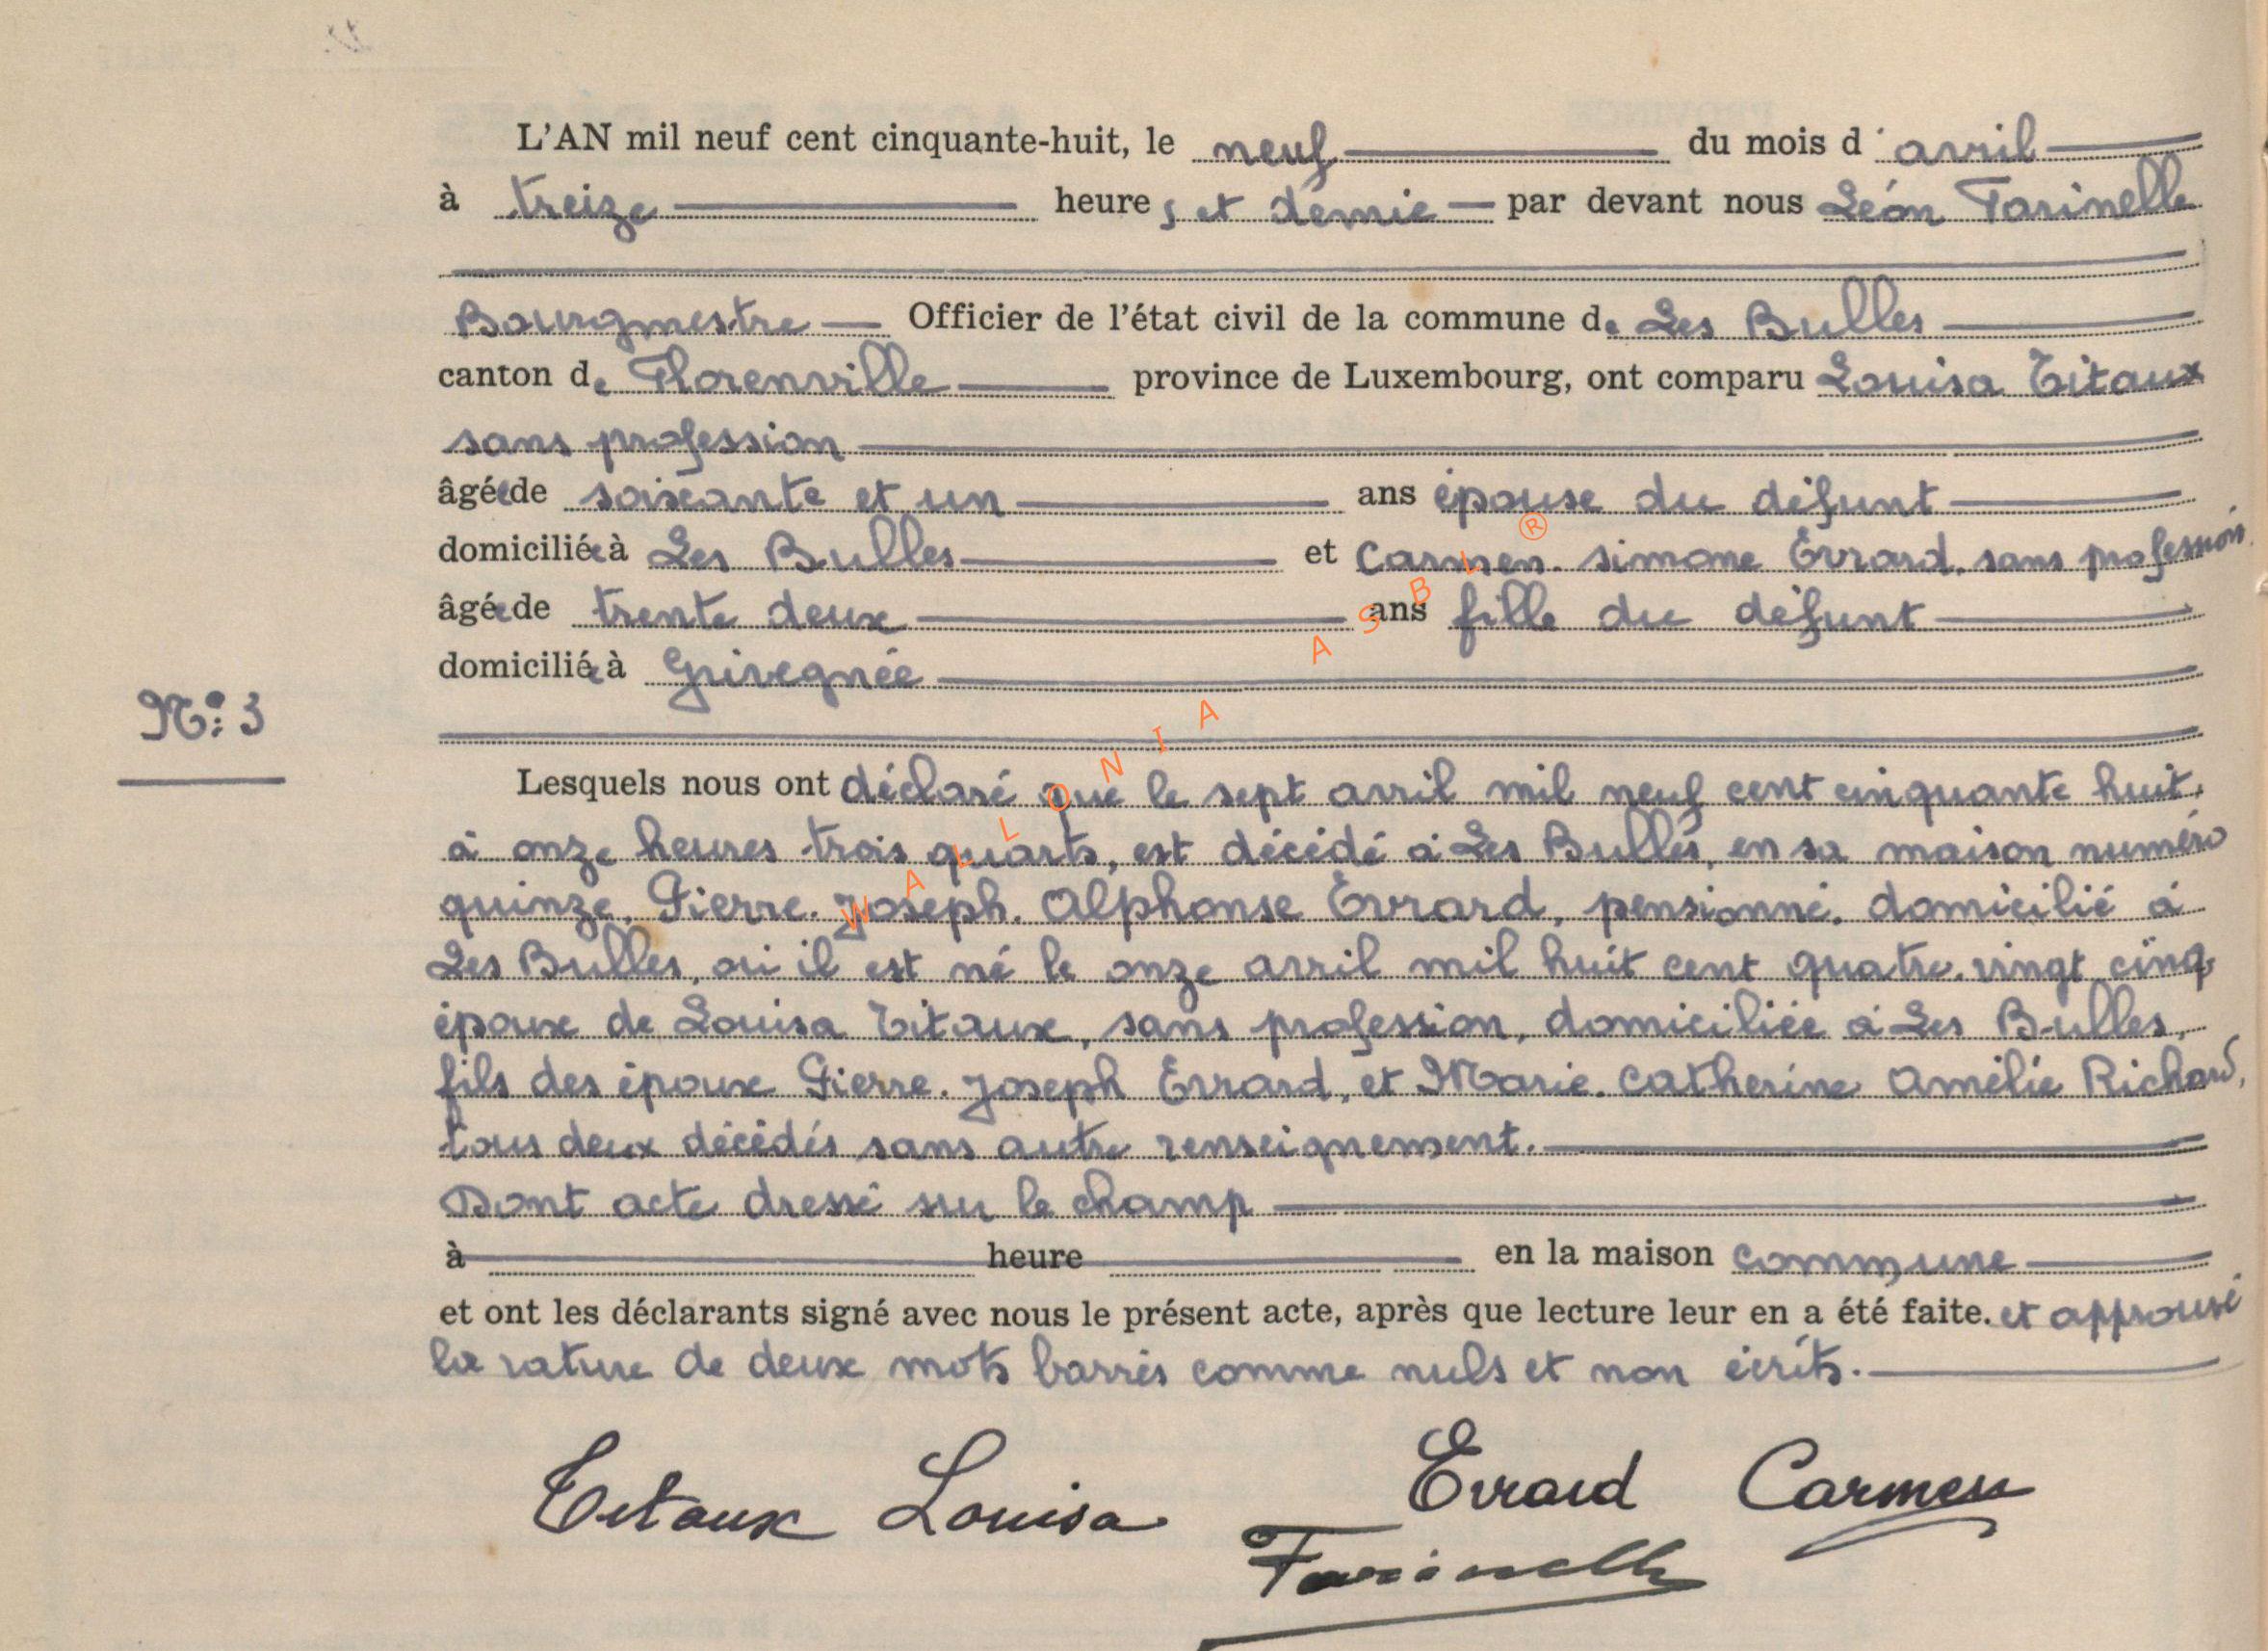 L'AN mil neuf cent cinquante-huit, le neuf du mois d'avril
à treize heures et demie par devant nous Léon Farinelle
Bourgmestre Officier de l'état civil de la commune de Les Bulles
canton de Florenville province de Luxembourg, ont comparu Louisa Titaux
sans profession
âgée de soixante et un ans épouse du défunt
domiciliée à Les Bulles et Carmen. Simone Evrard. sans profession
âgée de trente deux ans fille du défunt
domiciliée à Grivegnée
N°: 3
Lesquels nous ont déclaré que le sept avril mil neuf cent cinquante huit,
à onze heures trois quarts, est décédé à Les Bulles, en sa maison numéro
quinze, Pierre. Joseph. Alphonse Evrard, pensionné, domicilié à
Les Bulles, où il est né le onze avril mil huit cent quatre. vingt cinq,
époux de Louisa Titaux, sans profession, domiciliée à Les Bulles,
fils des époux Pierre. Joseph Evrard, et Marie. Catherine Amélie Richard,
tous deux décédés sans autre renseignement.
Dont acte dressé sur le champ
à heure en la maison commune
et ont les déclarants signé avec nous le présent acte, après que lecture leur en a été faite. et approuvé
la rature de deux mots barrés comme nuls et non écrits.
Titaux Louisa Evrard Carmen
Farinelle
WALLONIA ASBL ®